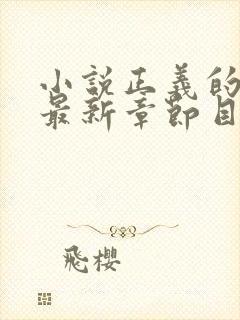 小説正義的
最新章節目
飛櫻